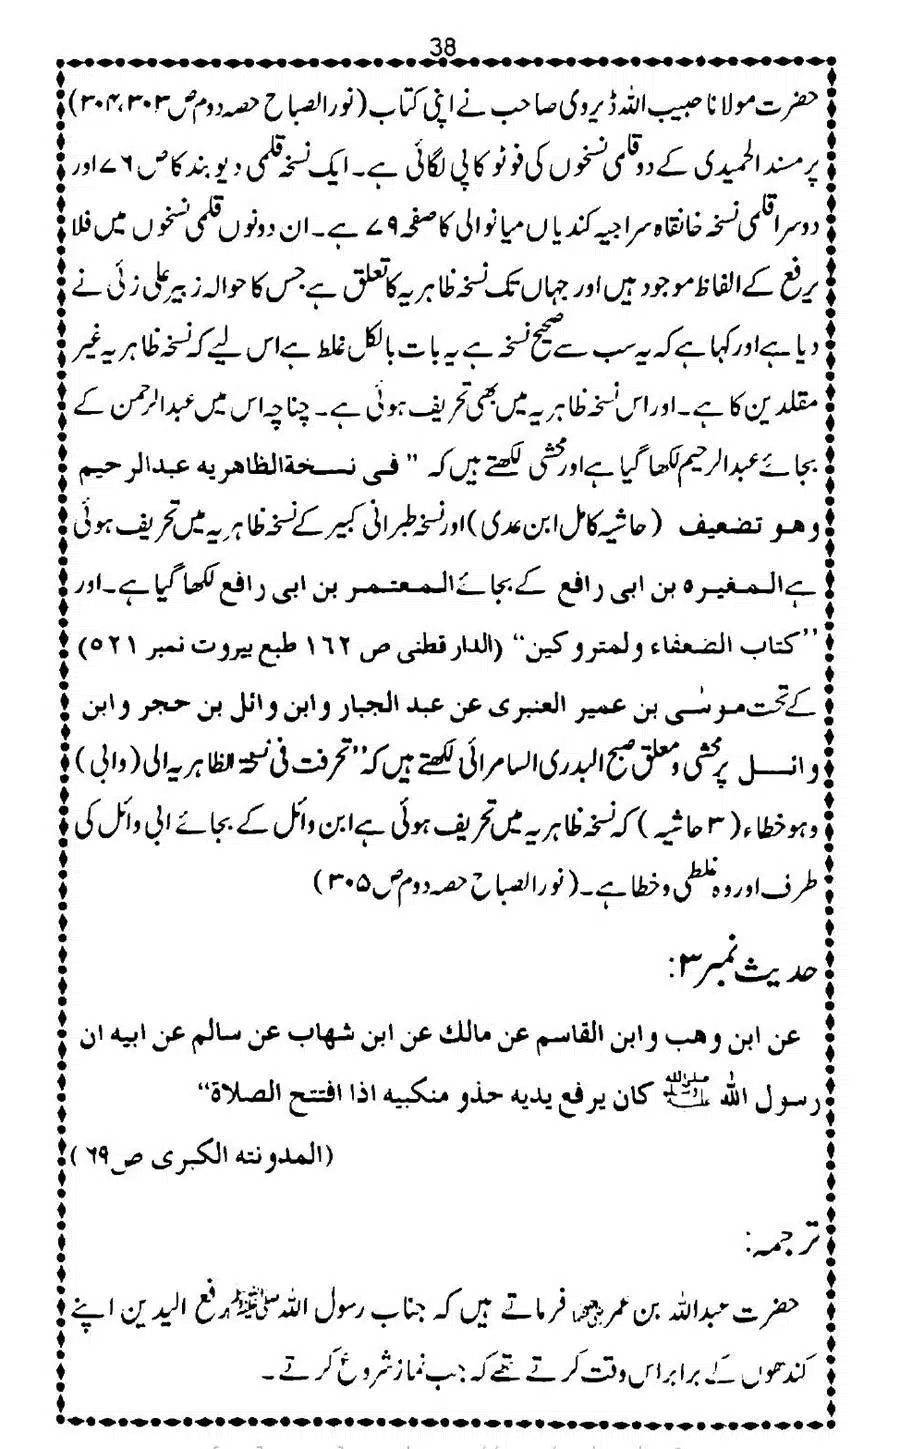 38
حضرت مولانا حبیب اللہ ڈیروی صاحب نے اپنی کتاب (نور الصباح حصہ دوم ص ۳۰۳،۳۰۴)
پر مسند الحمیدی کے دو قلمی نسخوں کی فوٹو کاپی لگائی ہے۔ ایک نسخہ قلمی دیوبند کا ص ۷۶ اور
دوسرا قلمی نسخہ خانقاہ سراجیہ کندیاں میانوالی کا صفحہ ۷۹ ہے۔ ان دونوں قلمی نسخوں میں فلا
یرفع کے الفاظ موجود ہیں اور جہاں تک نسخہ ظاہریہ کا تعلق ہے جس کا حوالہ زبیر علی زئی نے
دیا ہے اور کہا ہے کہ یہ سب سے صحیح نسخہ ہے یہ بات بالکل غلط ہے اس لیے کہ نسخہ ظاہریہ غیر
مقلدین کا ہے۔ اور اس نسخہ ظاہریہ میں بھی تحریف ہوئی ہے۔ چناچہ اس میں عبدالرحمن کے
بجائے عبدالرحیم لکھا گیا ہے اور محشی لکھتے ہیں کہ ” فی نسخۃ الظاھریہ عبدالرحیم
وھو تضعیف (حاشیہ کامل ابن عدی) اور نسخہ طبرانی کبیر کے نسخہ ظاہریہ میں تحریف ہوئی
ہے المغیرہ بن ابی رافع کے بجائے المعتمر بن ابی رافع لکھا گیا ہے۔ اور
’’کتاب الضعفاء ولمتروکین‘‘ (الدار قطنی ص ۱۶۲ طبع بیروت نمبر ۵۲۱)
کے تحت موسٰی بن عمیر العنبری عن عبد الجبار وابن وائل بن حجر وابن
وائل پر محشی و معلق صبح البدری السامرائی لکھتے ہیں کہ ’’تحرفت فی نسخۃ الظاہریہ الی (وابی)
وہو خطاء (۳ حاشیہ) کہ نسخہ ظاہریہ میں تحریف ہوئی ہے ابن وائل کے بجائے ابی وائل کی
طرف اور وہ غلطی و خطا ہے۔ (نور الصباح حصہ دوم ص ۳۰۵)
حدیث نمبر ۳:
عن ابن وھب وابن القاسم عن مالك عن ابن شھاب عن سالم عن ابیه ان
رسول اللہ ﷺ کان یرفع یدیه حذو منکبیه اذا افتتح الصلاۃ‘‘
(المدونته الکبری ص ۶۹)
ترجمہ:
حضرت عبداللہ بن عمر فرماتے ہیں کہ جناب رسول اللہ ﷺ رفع الیدین اپنے
کندھوں کے برابر اس وقت کرتے تھے کہ جب نماز شروع کرتے۔